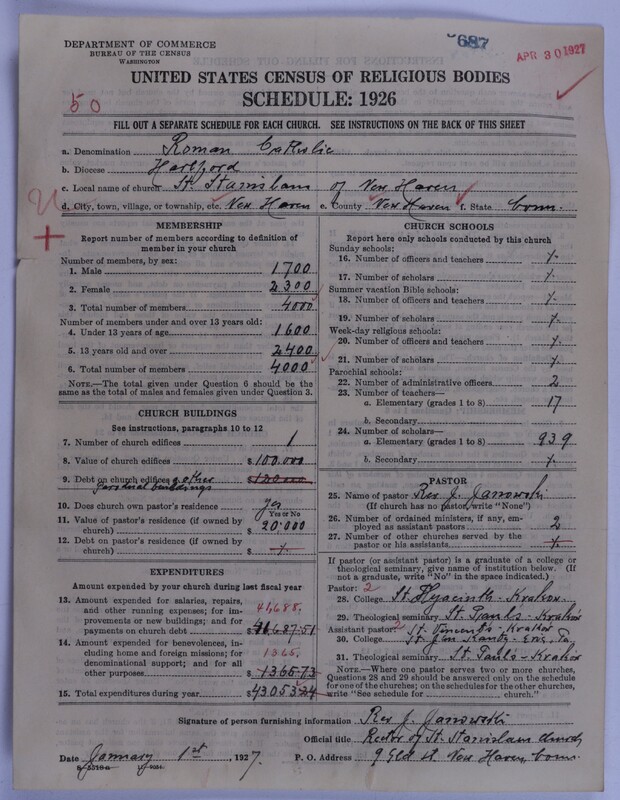 DEPARTMENT OF COMMERCE
BUREAU OF THE CENSUS
WASHINGTON
687
APR 30 1927
UNITED STATES CENSUS OF RELIGIOUS BODIES
SCHEDULE: 1926
50
FILL OUT A SEPARATE SCHEDULE FOR EACH CHURCH. SEE INSTRUCTIONS ON THE BACK OF THIS SHEET
a. Denomination Roman Catholic
b. Diocese Hartford
c. Local name of church St. Stanislaus of New Haven
d. City, town, village, or township, etc. New Haven e. County New Haven f. State Conn.
MEMBERSHIP
Report number of members according to definition of
member in your church
Number of members, by sex:
1. Male 1700
2. Female 2300
3. Total number of members 4000
Number of members under and over 13 years old:
4. Under 13 years of age 1600
5. 13 years old and over 2400
6. Total number of members 4000
NOTE.—The total given under Question 6 should be
same as the total of males and females given under Question 3.
CHURCH BUILDINGS
See instructions, paragraphs 10 to 12
7. Number of church edifices 1
8. Value of church edifices $ 100.000
9. Debt on church edifices & other $ 100.000
buildings
10. Does church own pastor's residence? yes
Yes or No
11. Value of pastor's residence (if owned by
church) $ 20.000
12. Debt on pastor's residence (if owned by
church) $ -/.
EXPENDITURES
Amount expended by your church during last fiscal year
13. Amount expended for salaries, repairs,
and other running expenses; for im-
provements or new buildings; and for
payments on church debt $ 41,688. 41687.51
14. Amount expended for benevolences, in-
cluding home and foreign missions; for
denominational support; and for all
other purposes $ 1365. 1365.73
15. Total expenditures during year $ 43053.24
CHURCH SCHOOLS
Report here only schools conducted by this church
Sunday schools:
16. Number of officers and teachers -/.
17. Number of scholars -/.
Summer vacation Bible schools:
18. Number of officers and teachers -/.
19. Number of scholars -/.
Week-day religious schools:
20. Number of officers and teachers -/.
21. Number of scholars -/.
Parochial schools:
22. Number of administrative officers 2
23. Number of teachers—
a. Elementary (grades 1 to 8) 17
b. Secondary
24. Number of scholars—
a. Elementary (grades 1 to 8) 939
b. Secondary -/.
PASTOR
25. Name of pastor Rev J. Janowski
(If church has no pastor, write "None")
26. Number of ordained ministers, if any, em-
ployed as assistant pastors 2
27. Number of other churches served by the
pastor or his assistants -/.
If pastor (or assistant pastor) is a graduate of a college or
theological seminary, give name of institution below. (If
not a graduate, write "No" in the space indicated.)
Pastor: 2
28. College St. Hyacinth - Krakow
29. Theological seminary St. Pauls - Krakow
Assistant pastor: 2 St. Vincents - Krakow
30. College Erie, Pa
31. Theological seminary St. Pauls - Krakow
NOTE.—Where one pastor serves two or more churches,
Questions 28 and 29 should be answered only on the schedule
for one of the churches; on the schedules for the other churches,
write "See schedule for church."
Signature of person furnishing information Rev J. Janowski
Official title Rector of St. Stanislaus church
Date January 1st, 1927. P. O. Address 9 Eld st. New Haven, Conn.